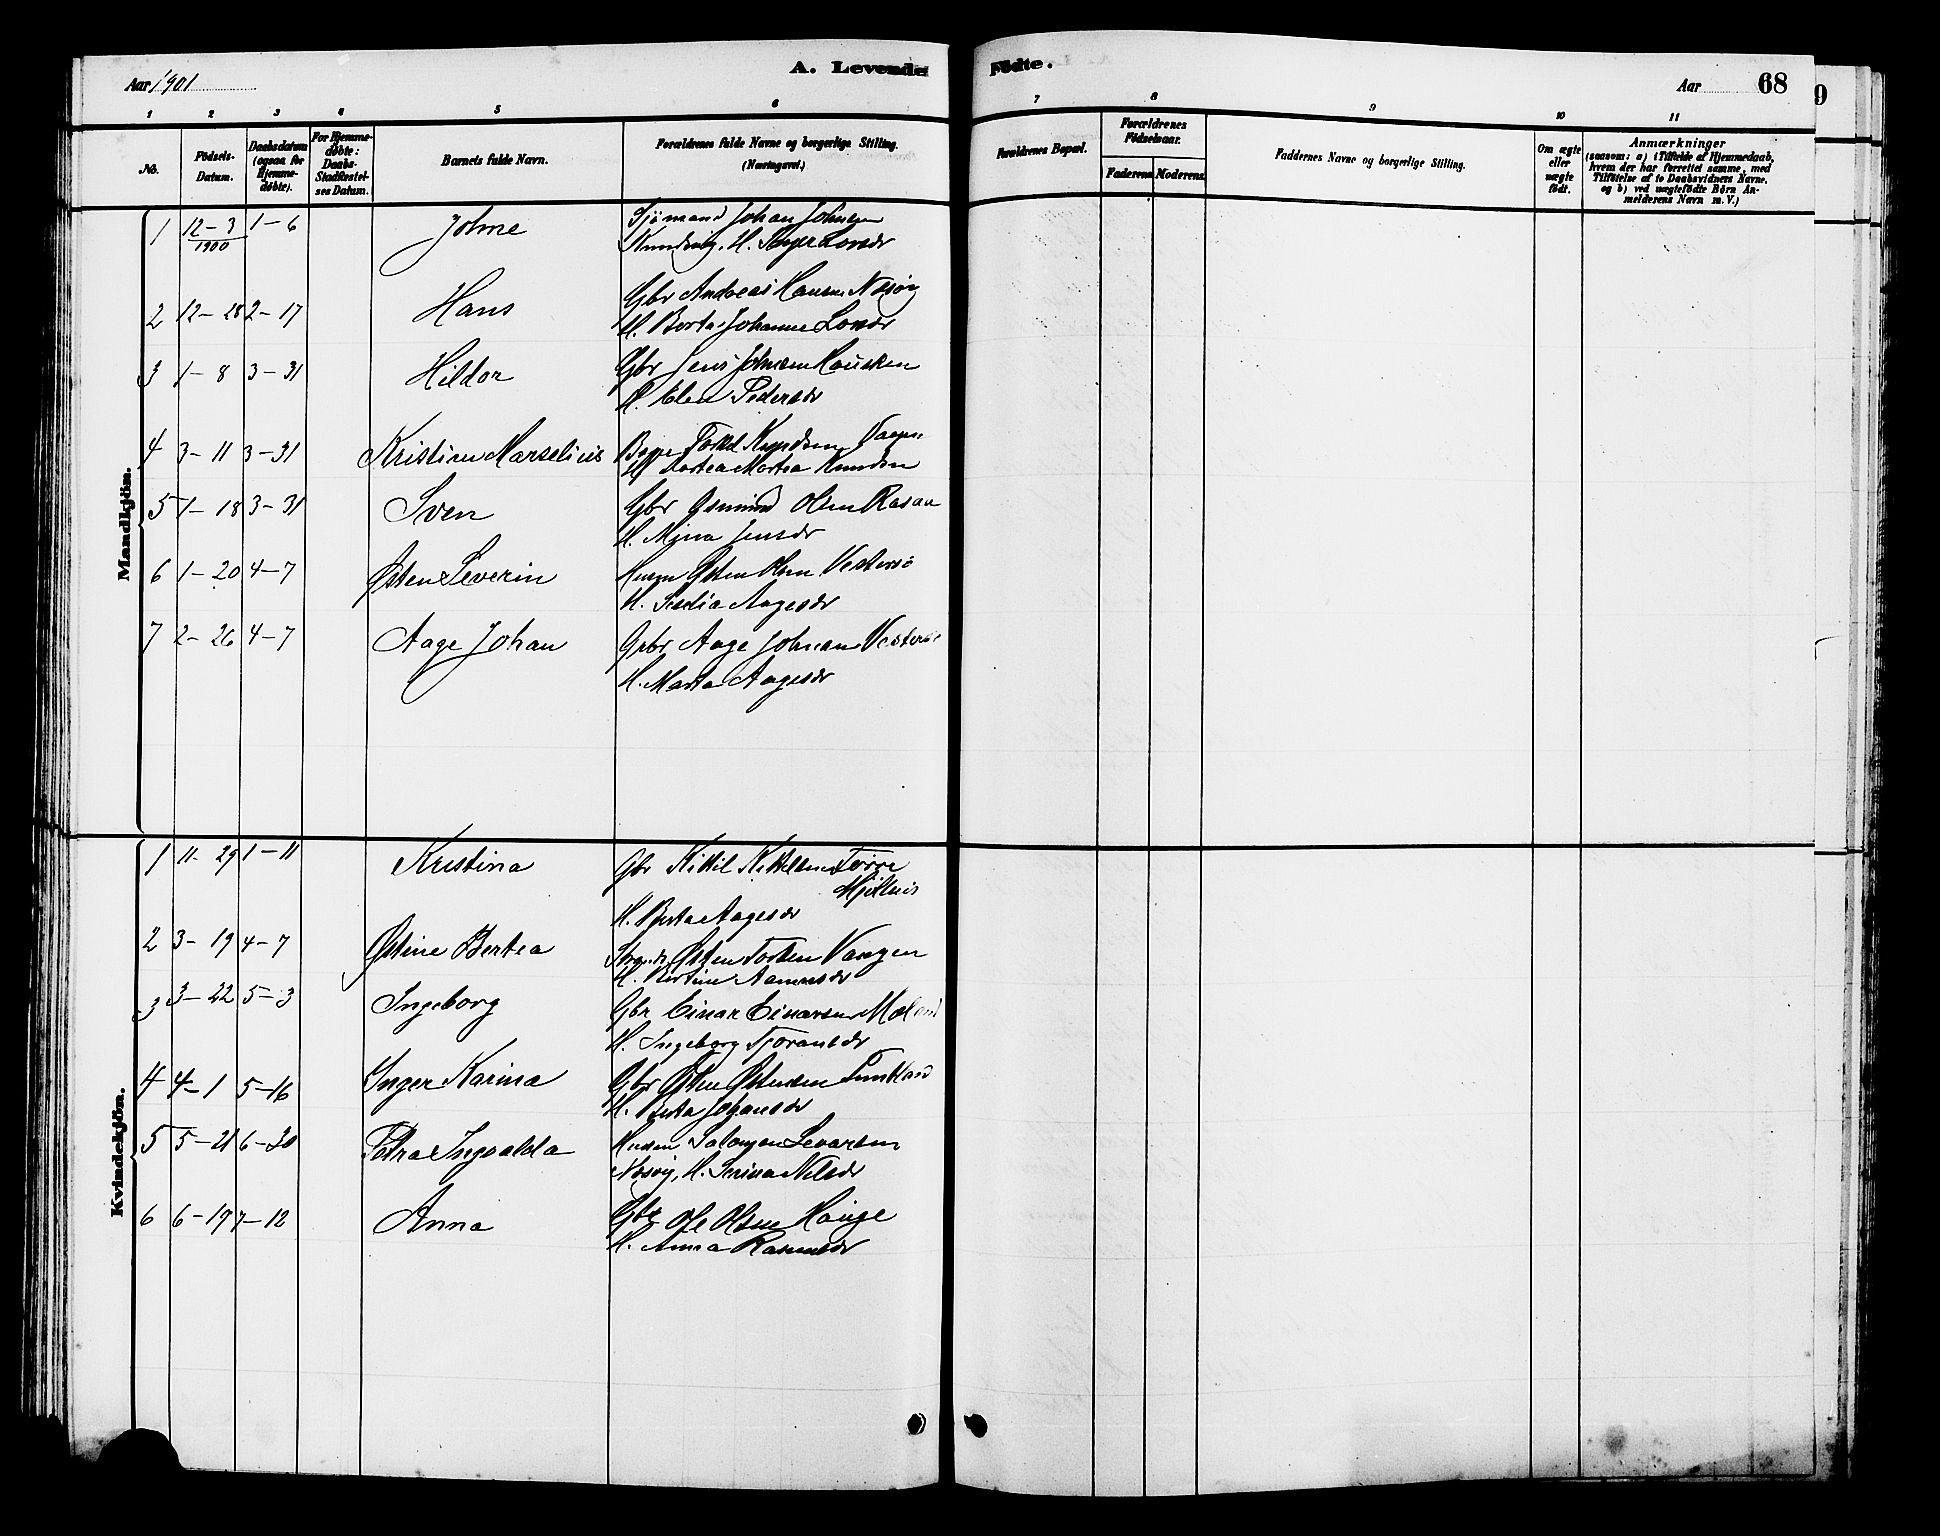 Aar 1901
A. Levende
Fødte.
Aar
68
9
1 2 3 4 5 6 7 8 9 10 11
No.
Fødsels-
Datum.
Daabsdatum
(ogsaa for
Hjemme-
døbte).
For Hjemme-
døbte:
Daabs-
Stadfæstel-
ses Datum.
Barnets fulde Navn.
Forældrenes fulde Navne og borgerlige Stilling.
(Næringsvei.)
Forældrenes Bopæl.
Forældrenes
Fødselsaar.
Faderens Moderens
Faddernes Navne og borgerlige Stilling.
Om ægte
eller
uægte
født.
Anmærkninger
(saasom: a) i Tilfælde af Hjemmedaab,
hvem der har forrettet samme, med
Tilføielse af to Daabsvidners Navne,
og b) ved uægtefødte Børn An-
melderens Navn m. V.)
Mandkjøn.
1 12-3 1-6 Johne Sjömand Johan Johnsen
1900 H. Inger Larsdr
2 12-28 2-17 Hans Gbr Andreas Hansen
H. Berta Johanne Larsdr
3 1-8 3-31 Hildor Gbr Jens Johnsen Hausken
H. Elen Pedersdr
4 3-11 3-31 Kristian Marselius Knudsen
H. Martea Knudsen
5 1-18 3-31 Sven Gbr Osmund Olsen
H. Jensdr
6 1-20 4-7 Østen Severin Husm Østen Olsen Vestersö
H. Aagesdr
7 2-26 4-7 Aage Johan Gbr Aage Johnsen
H. Marta Aagesdr
Kvindekjøn.
1 11-29 1-11 Kristina Gbr Kittil Kittelsen
H. Berta Aagesdr
2 3-19 4-7 Østine Bertea Østen Vaagen
H. Bertine
3 3-22 5-3 Ingeborg Gbr Einar Einarsen
H. Ingeborg
4 4-1 5-16 Inger Karina Gbr Østen Østensen
H. Berta Johansdr
5 5-21 6-30 Petra Ingvalda Husm Salomon Sevarsen
H. Serina Nilsdr
6 6-19 7-12 Anna Gbr Ole Olsen Hauge
H. Anna Rasmusdr